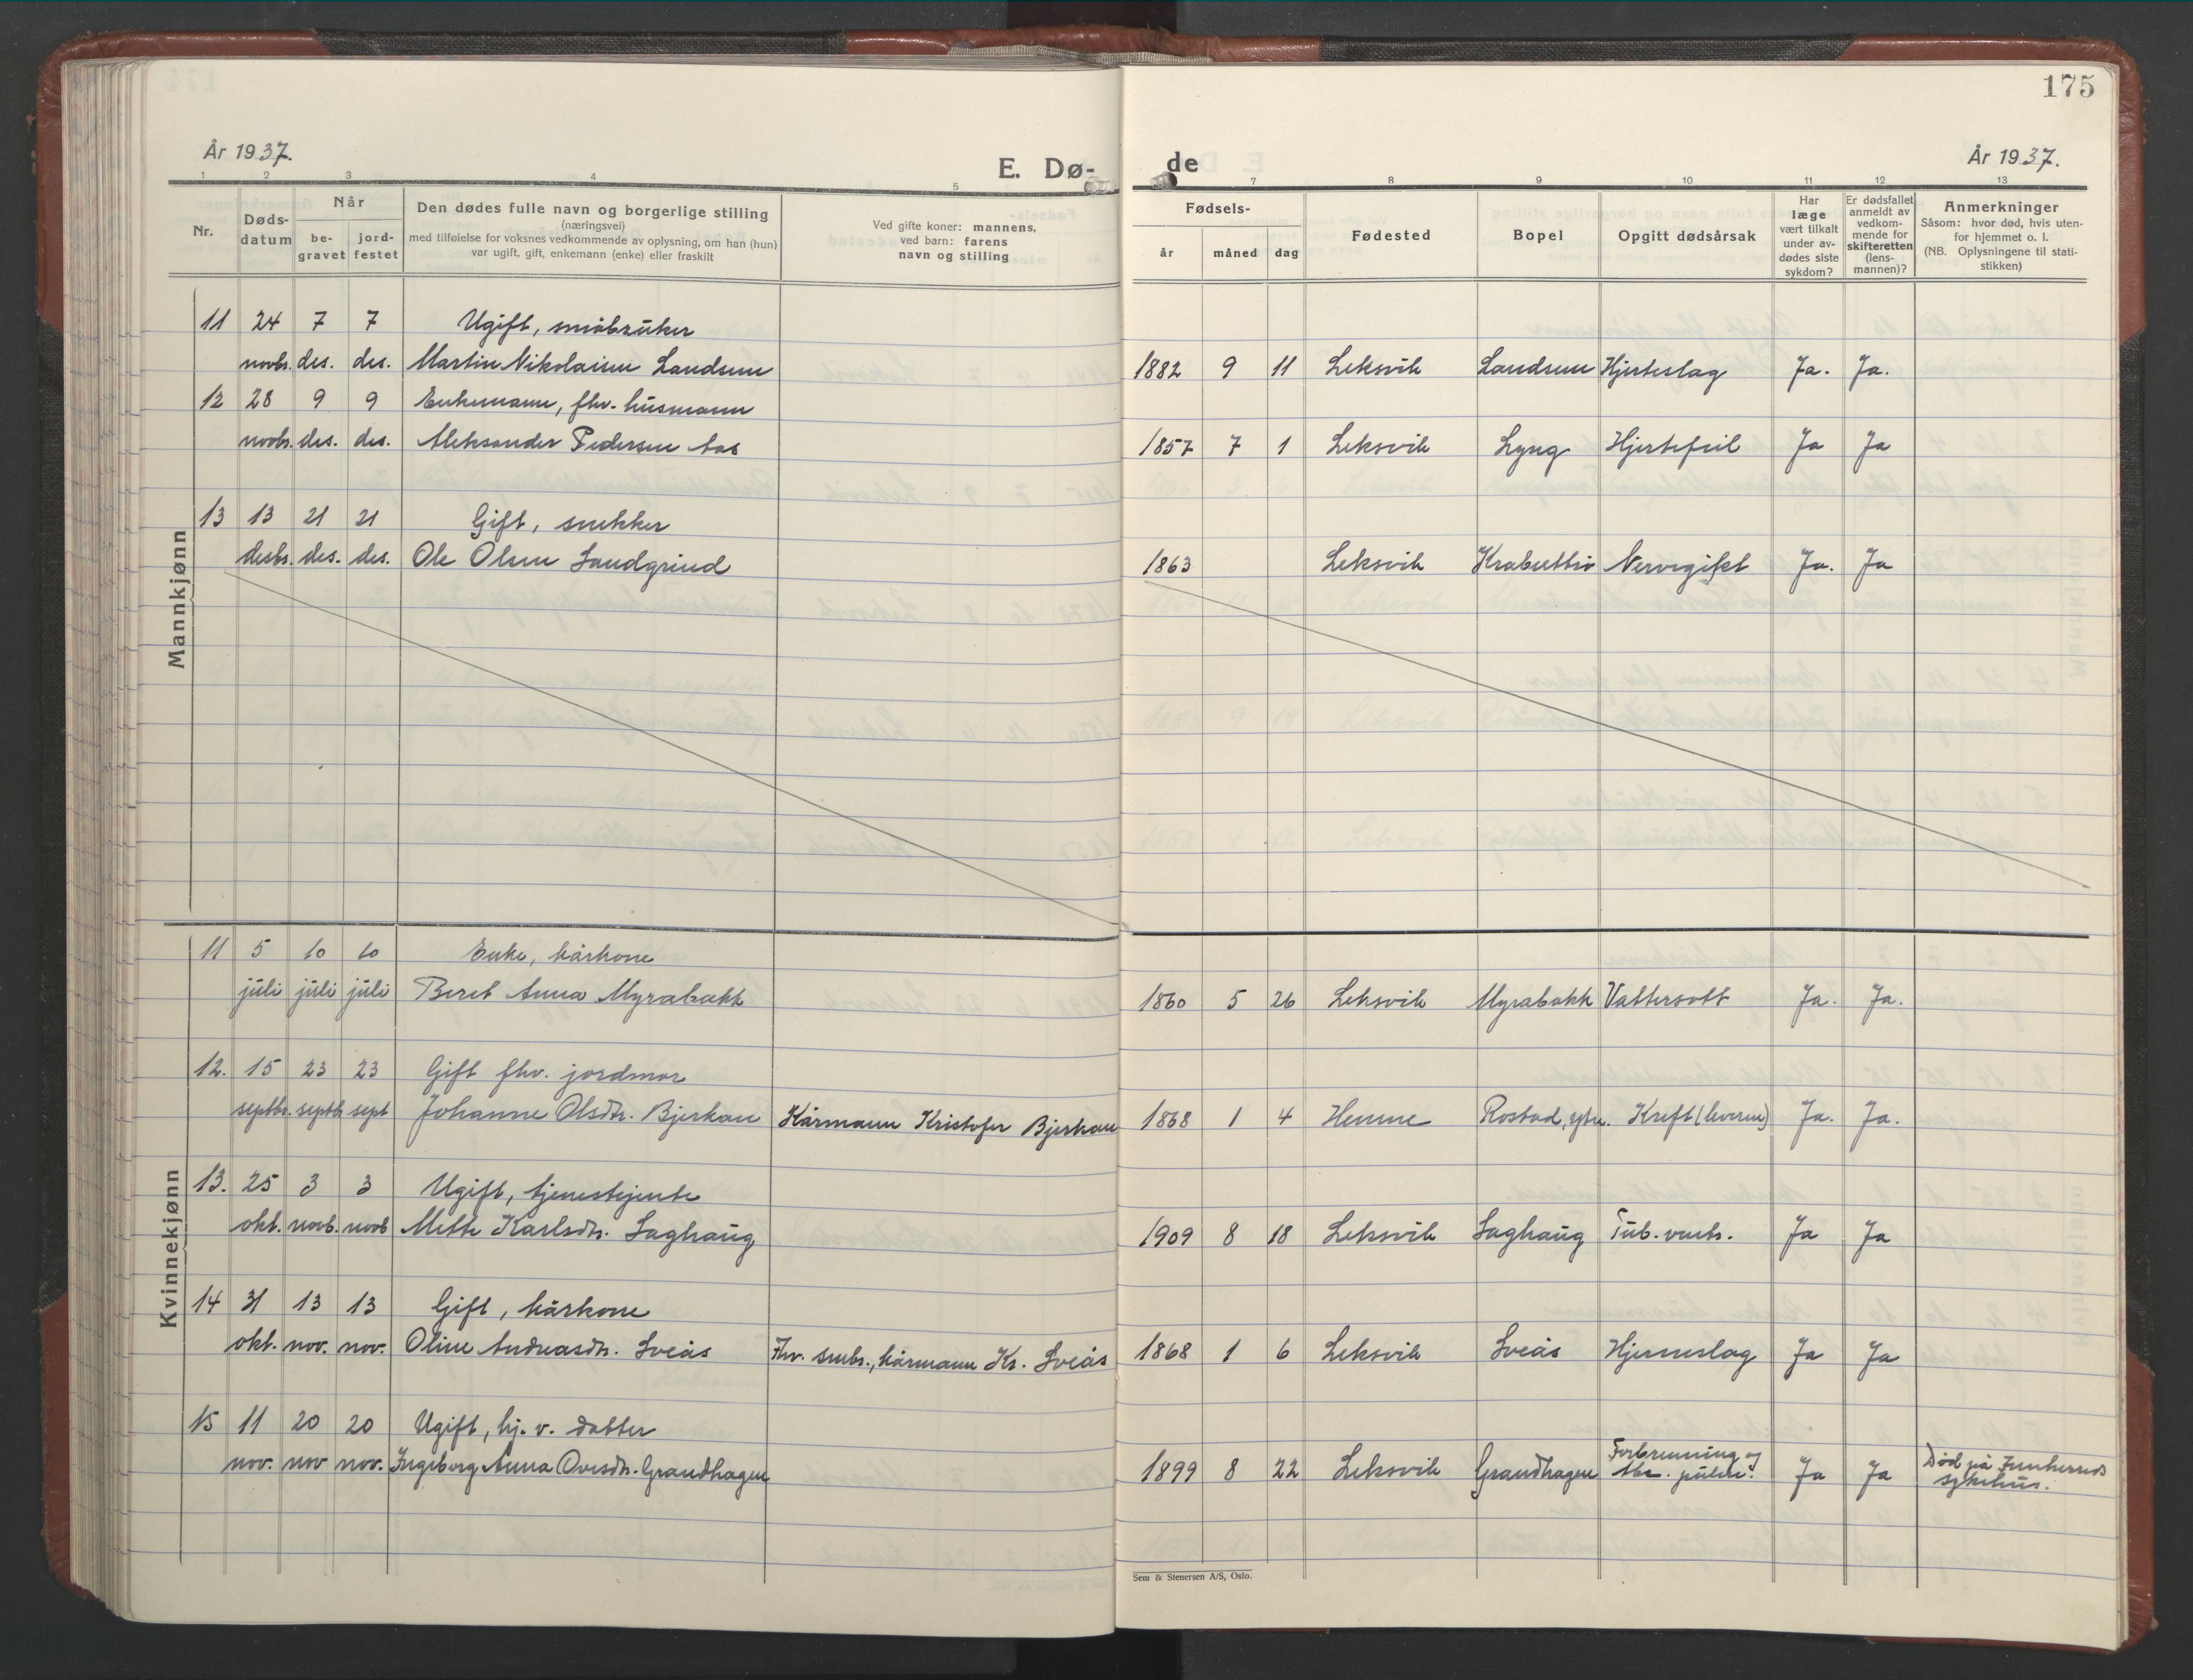 175
År 1937.
E. Dø-
de
År 1937.
1 2 3 4 5 7 8 9 10 11 12 13
Nr.
Døds-
datum
Når
be-
gravet
jord-
festet
Den dødes fulle navn og borgerlige stilling
(næringsvei)
med tilføielse for voksnes vedkommende av oplysning, om han (hun)
var ugift, gift, enkemann (enke) eller fraskilt
Ved gifte koner: mannens,
ved barn: farens
navn og stilling
Fødsels-
år måned dag
Fødested
Bopel
Opgitt dødsårsak
Har
læge
vært tilkalt
under av-
dødes siste
sykdom?
Er dødsfallet
anmeldt av
vedkom-
mende for
skifteretten
(lens-
mannen)?
Anmerkninger
Såsom: hvor død, hvis uten-
for hjemmet o. l.
(NB. Oplysningene til stati-
stikken)
Mannkjønn
11 24 7 7 Ugift, småbruker
novbr. des. des. Martin Nikolaisen Landsem 1882 9 11 Leksvik Landsem Hjerteslag Ja. Ja.
12 28 9 9 Enkemann, fhv. husmann
novbr. des. des. Aleksander Pedersen Aas 1857 7 1 Leksvik Lyng Hjertefeil Ja Ja
13 13 21 21 Gift, snekker
desbr. des. des. Ole Olsen Sandgrind 1863 Leksvik Nervegikt Ja. Ja
Kvinnekjønn
11 5 10 10 Enke, kårkone
juli juli juli Beret Anna Myrabakk 1860 5 26 Leksvik Myrabakk Vattersott Ja. Ja.
12. 15 23 23 Gift fhv. jordmor
septbr. septb sept Johanne Olsdtr. Bjerkan Kårmann Kristofer Bjerkan 1868 1 4 Hemne Rostad, ytre. Kreft (leveren) Ja. Ja.
13. 25 3 3 Ugift, tjenestejente
okt. novb. novb Mette Karlsdtr. Saghaug 1909 8 18 Leksvik Saghaug Tub. Ja Ja
14 31 13 13 Gift, kårkone
okt. nov. nov. Oline Andreasdtr. Sveås Fhv. smbr., kårmann Kr. Sveås 1868 1 6 Leksvik Sveås Hjerneslag Ja Ja
15 11 20 20 Ugift, hj. v. datter
nov. nov nov. Ingeborg Anna Ovesdtr. Grandhagen 1899 8 22 Leksvik Grandhagen Forbrenning og Ja Ja Død på Innherreds
sykehus.
Sem & Stenersen A/S, Oslo.